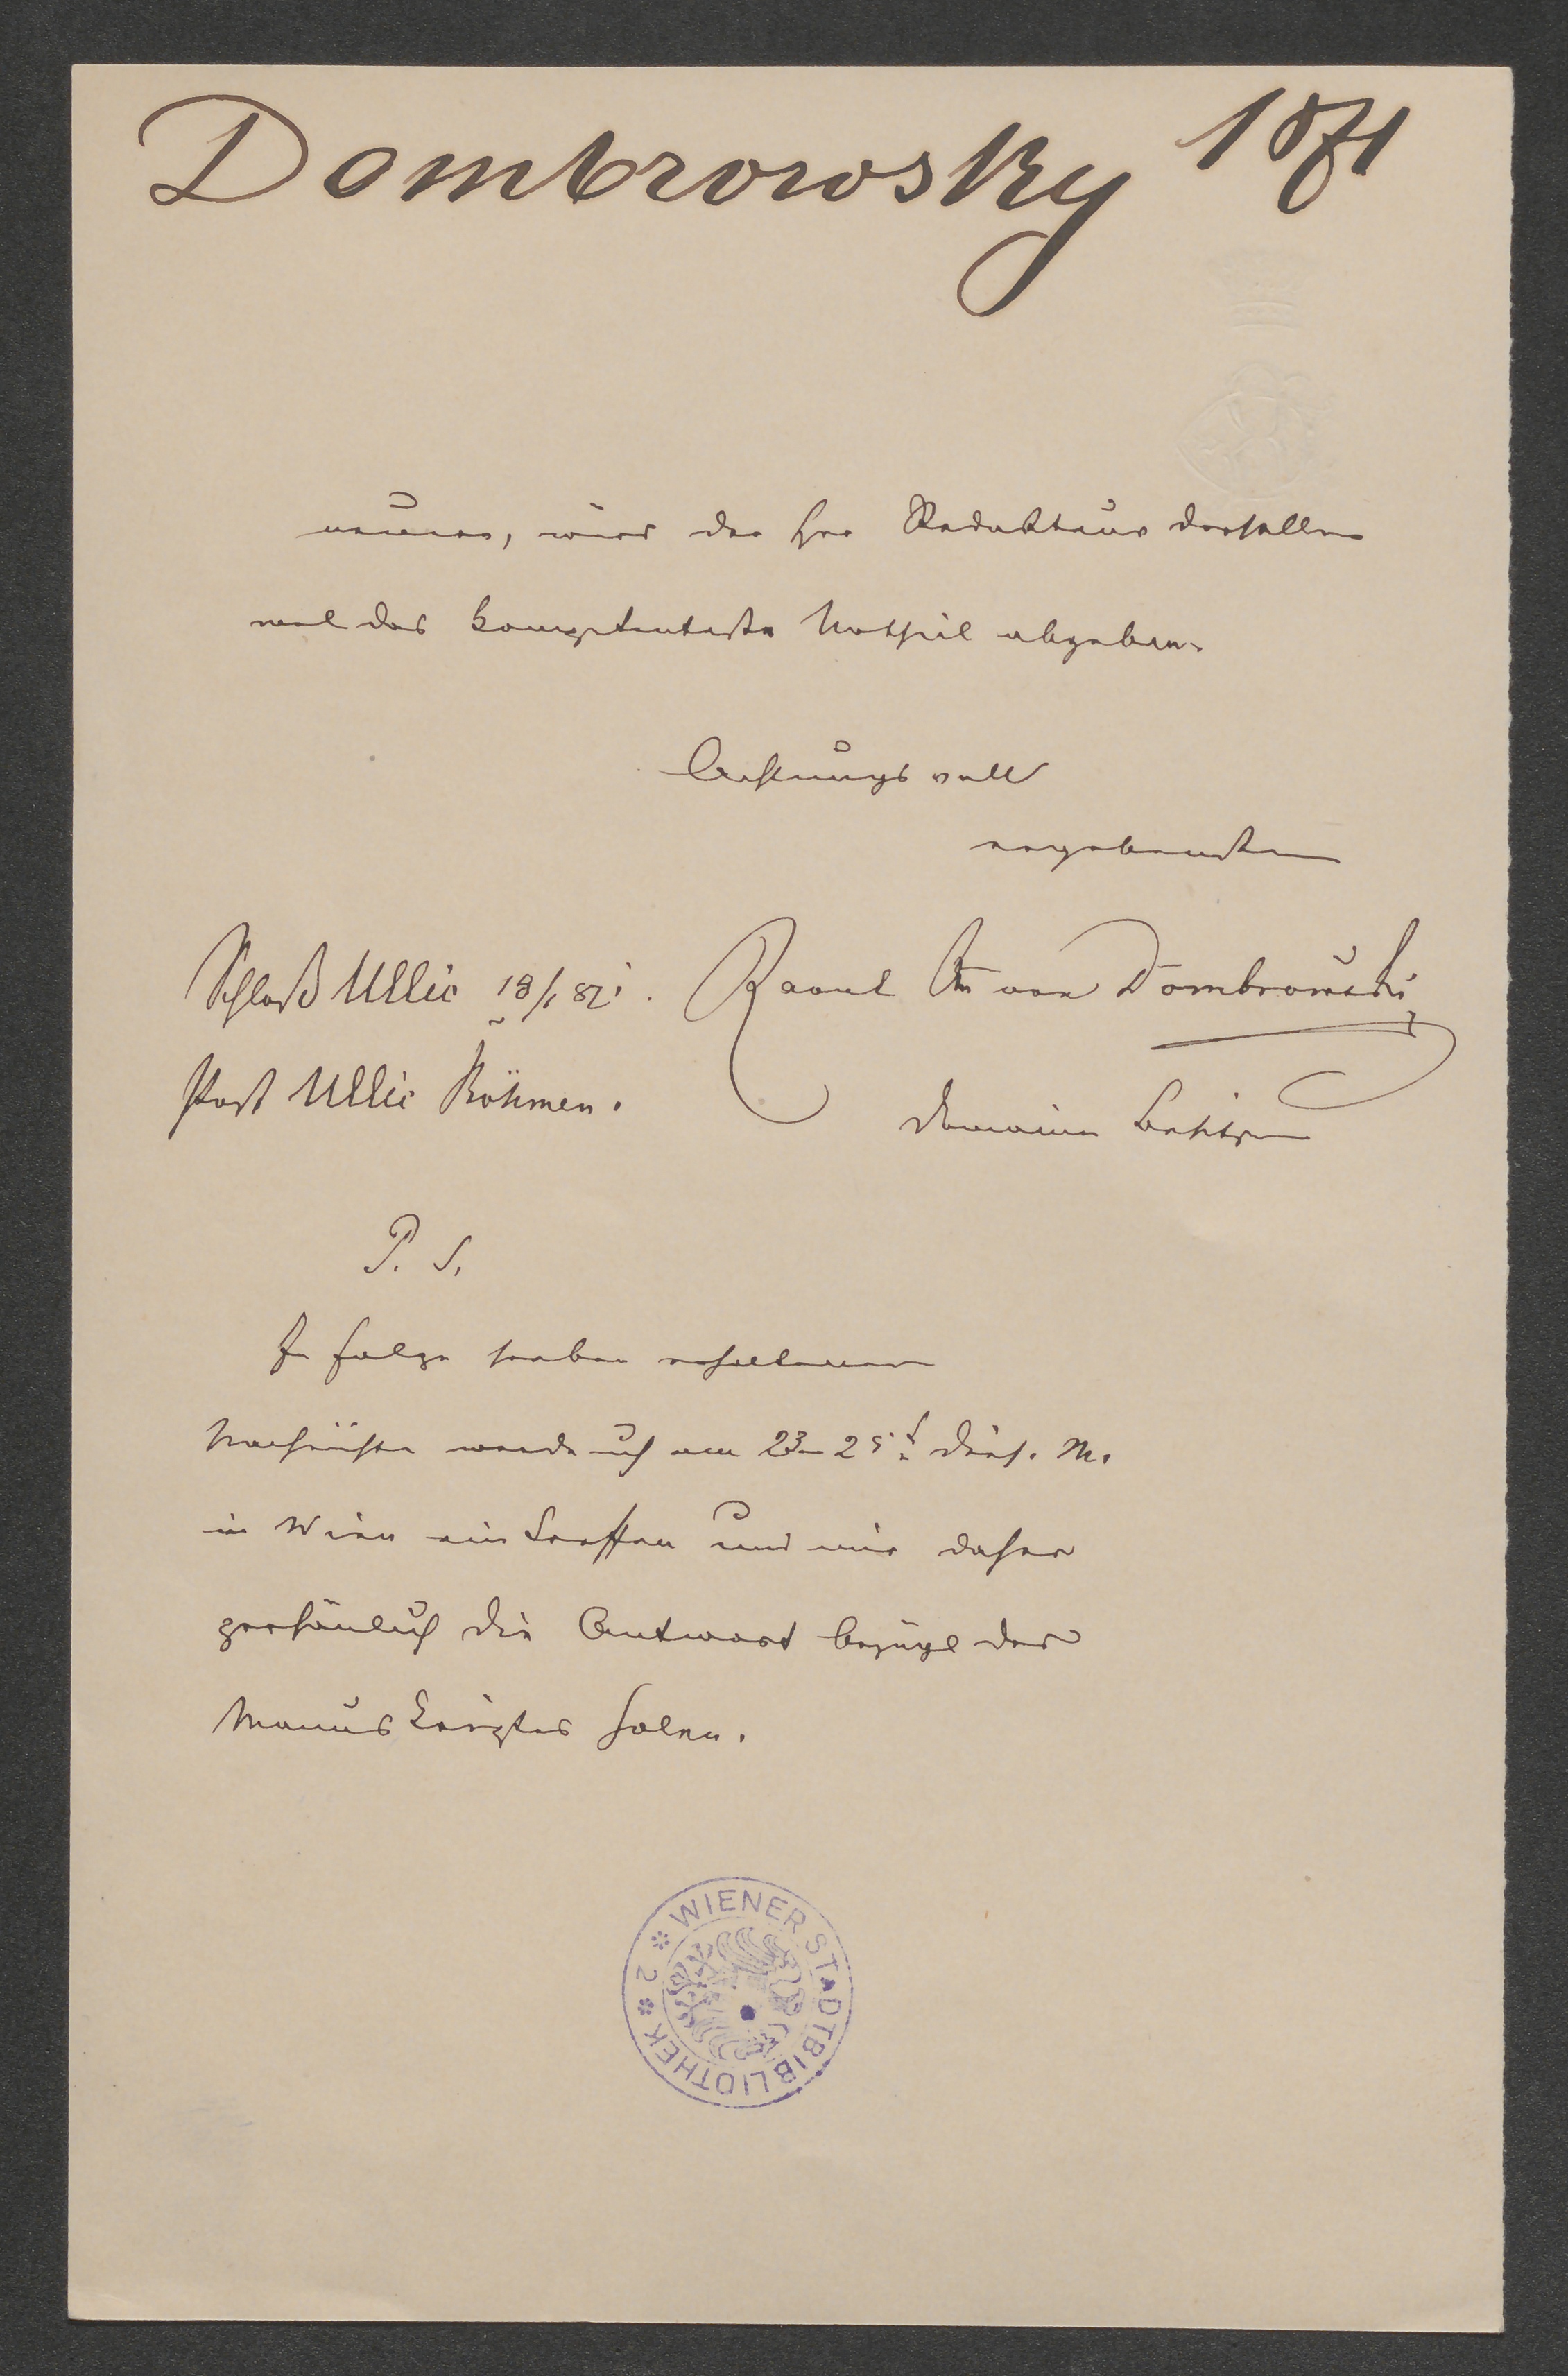 Dombrowsky 1871
nennen, wird der Herr Redakteur derselben
wol das kompetenteste Urtheil abgeben.
Achtungsvoll
ergebenster
Schloß Ullic 18/1 82. Raoul von Dombrowski
Post Ullic Böhmen.
Domainen Besitzer
P. S.
In Folge soeben erhaltener
Nachricht werde ich am 23–25t dies. M.
in Wien eintreffen und mir daher
persönlich die Antwort bezügl des
Manuskriptes holen.
WIENER STADTBIBLIOTHEK * 2 *